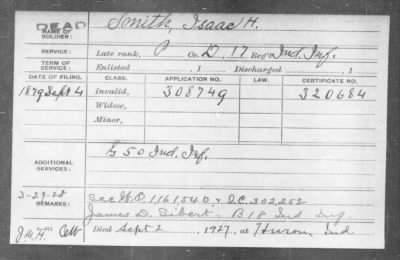 DEAD
NAME OF SOLDIER: Smith, Isaac H.
SERVICE: Late rank, P Co. D, 17 Reg't Ind. Inf.
TERM OF SERVICE: Enlisted , 1 Discharged , 1
DATE OF FILING. CLASS. APPLICATION NO. LAW. CERTIFICATE NO.
1879 Sept 4 Invalid, 308749 320684
Widow,
Minor,
ADDITIONAL SERVICES: G 50 Ind. Inf.
3-29-28
REMARKS: See W.O. 1161540 & I.C. 302,252
James D. Sibert - B 18 Ind Inf.
Died Sept 2 , 1927, at Huron, Ind